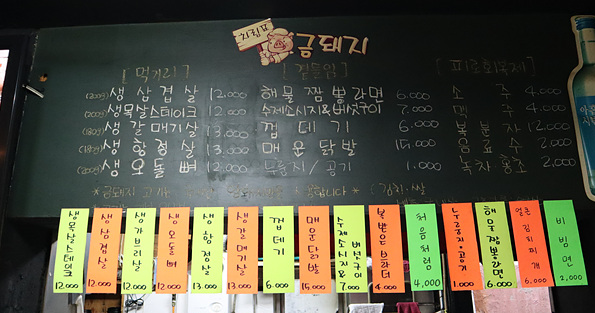 치림표
금돼지
[먹거리]
(200g) 생삼겹살 12.000
(200g) 생목살스테이크 12.000
(180g) 생갈매기살 13.000
(180g) 생항정살 13.000
(200g) 생오돌뼈 12.000
[곁들임]
해물짬뽕라면 6.000
수제소시지&버섯구이 7.000
껍데기 6.000
매운닭발 15.000
누룽지/공기 1.000
[피로회복제]
소주 4.000
맥주 4.000
복분자 12.000
음료수 2.000
녹차홍초 2.000
*금돼지
합니다* (김치.쌀
생목살스테이크 12.000
생삼겹살 12.000
생가브리살 12.000
생오돌뼈 12.000
생항정살 13.000
생갈매기살 13.000
껍데기 6.000
매운닭발 15.000
수제소시지& 버섯구이 7.000
4.000
처음처럼 4,000
누룽지·공기 1.000
해물짬뽕라면 6.000
얼큰김치찌개 6.000
비빔면 2,000